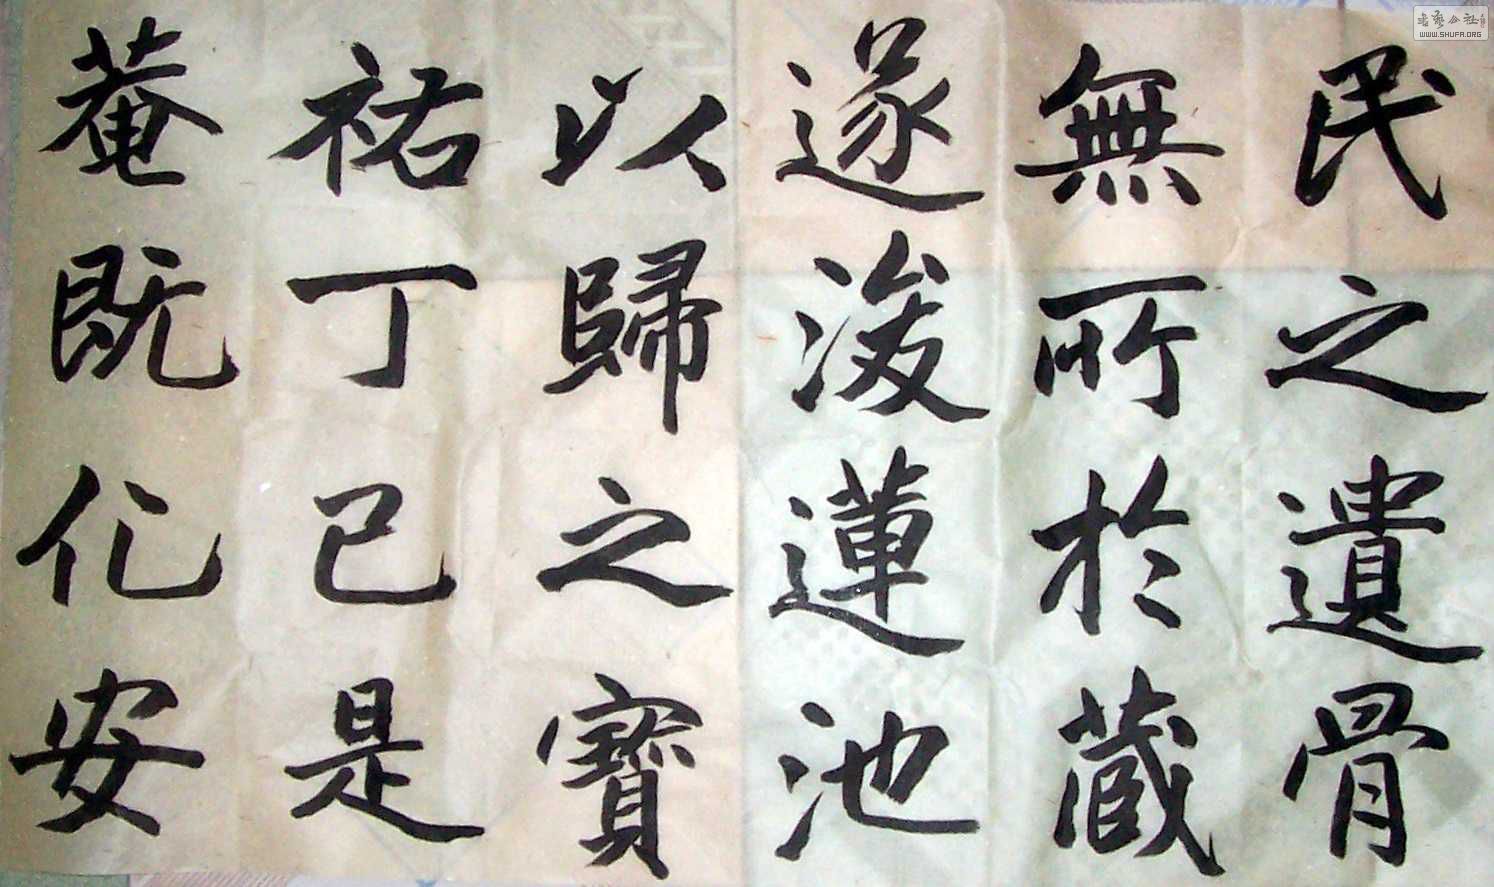 民之遺骨
無所於藏
遂浚蓮池
以歸之寶
祐丁巳是
菴既化安
WWW.SHUFA.ORG